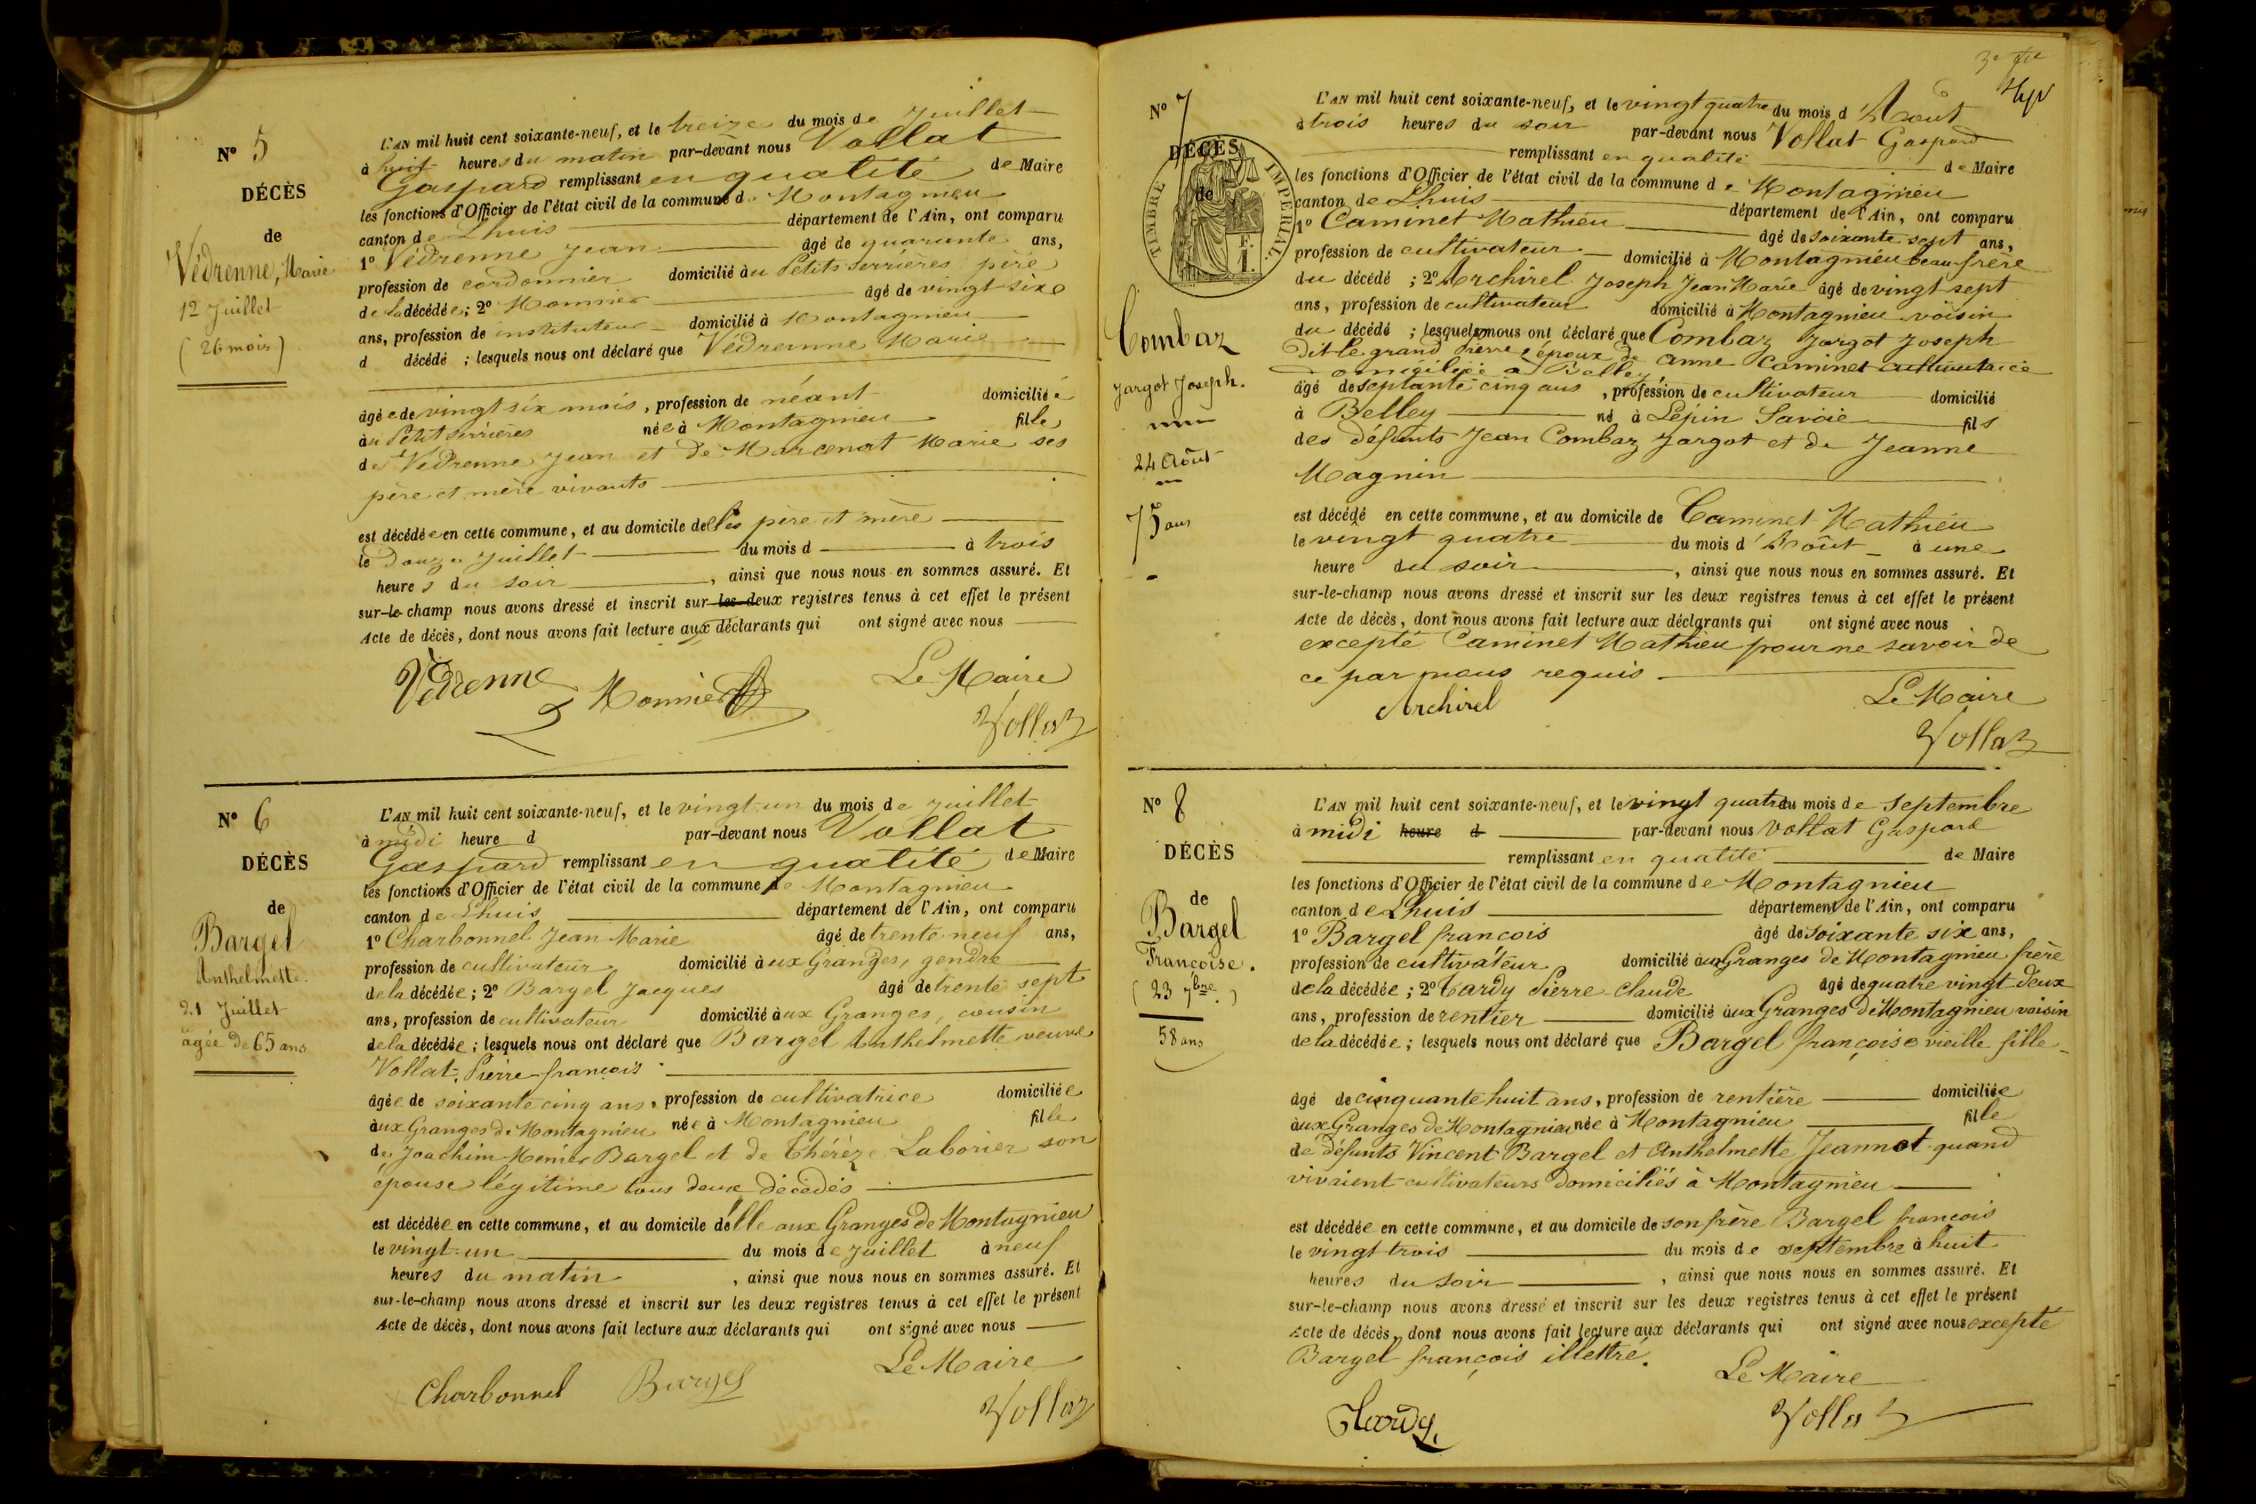 N° 5
DÉCÈS
de
Védrenne, Marie
12 Juillet
(26 mois)
L'AN mil huit cent soixante-neuf, et le treize du mois de Juillet
à huit heures du matin par-devant nous Vollat
Gaspard remplissant en qualité de Maire
les fonctions d'Officier de l'état civil de la commune de Montagnieu
canton de Lhuis département de l'Ain, ont comparu
1° Védrenne Jean âgé de quarante ans,
profession de cordonnier domicilié au Petits Serrières père
de la décédée; 2° Monnier âgé de vingt six
ans, profession de instituteur domicilié à Montagnieu
d décédé ; lesquels nous ont déclaré que Védrenne Marie
âgée de vingt six mois, profession de néant domiciliée
au Petit Serrières née à Montagnieu fille
de Védrenne Jean et de Marcenat Marie ses
père et mère vivants
est décédée en cette commune, et au domicile de ses père et mère
le Douze Juillet du mois d à trois
heures du soir, ainsi que nous nous en sommes assuré. Et
sur-le-champ nous avons dressé et inscrit sur les deux registres tenus à cet effet le présent
Acte de décès, dont nous avons fait lecture aux déclarants qui ont signé avec nous
Védrenne Monnier Le Maire
Vollat
N° 6
DÉCÈS
de
Bargel
Anthelmette.
21 Juillet
âgée de 65 ans
L'AN mil huit cent soixante-neuf, et le vingt-un du mois de Juillet
à midi heure d par-devant nous Vollat
Gaspard remplissant en qualité de Maire
les fonctions d'Officier de l'état civil de la commune de Montagnieu
canton de Lhuis département de l'Ain, ont comparu
1° Charbonnel Jean Marie âgé de trente neuf ans,
profession de cultivateur domicilié aux Granges, gendre
de la décédée; 2° Bargel Jacques âgé de trente sept
ans, profession de cultivateur domicilié aux Granges, cousin
de la décédée; lesquels nous ont déclaré que Bargel Anthelmette veuve
Vollat, Pierre françois
âgée de soixante cinq ans, profession de cultivatrice domiciliée
aux Granges de Montagnieu née à Montagnieu fille
de Joachim Bargel et de Thérèze Laborier son
épouse légitime tous deux décédés
est décédée en cette commune, et au domicile d'elle aux Granges de Montagnieu
le vingt-un du mois de Juillet à neuf
heures du matin, ainsi que nous nous en sommes assuré. Et
sur-le-champ nous avons dressé et inscrit sur les deux registres tenus à cet effet le présent
Acte de décès, dont nous avons fait lecture aux déclarants qui ont signé avec nous
Charbonnel Bargel Le Maire
Vollat
N° 7
DÉCÈS
de
TIMBRE IMPERIAL
Combaz
Jargot Joseph.
24 Août
75 ans
L'AN mil huit cent soixante-neuf, et le vingt quatre du mois d'Août
à trois heures du soir par-devant nous Vollat Gaspard
remplissant en qualité de Maire
les fonctions d'Officier de l'état civil de la commune de Montagnieu
canton de Lhuis département de l'Ain, ont comparu
1° Caminet Mathieu âgé de soixante sept ans,
profession de cultivateur domicilié à Montagnieu beau frère
du décédé ; 2° Archirel Joseph Jean Marie âgé de vingt sept
ans, profession de cultivateur domicilié à Montagnieu voisin
du décédé ; lesquels nous ont déclaré que Combaz Jargot Joseph
Dit le grand Pierre, époux de anne Caminet cultivatrice
domiciliée à Belley
âgé de septante cinq ans, profession de cultivateur domicilié
à Belley né à Lépin Savoie fils
des défunts Jean Combaz Jargot et de Jeanne
Magnin
est décédé en cette commune, et au domicile de Caminet Mathieu
le vingt quatre du mois d'Août à une
heure du soir, ainsi que nous nous en sommes assuré. Et
sur-le-champ nous avons dressé et inscrit sur les deux registres tenus à cet effet le présent
Acte de décès, dont nous avons fait lecture aux déclarants qui ont signé avec nous
excepté Caminet Mathieu pour ne savoir de
ce par nous requis
Archirel Le Maire
Vollat
N° 8
DÉCÈS
de
Bargel
Françoise.
(23 7bre)
58 ans
L'AN mil huit cent soixante-neuf, et le vingt quatre du mois de septembre
à midi heure d par-devant nous Vollat Gaspard
remplissant en qualité de Maire
les fonctions d'Officier de l'état civil de la commune de Montagnieu
canton de Lhuis département de l'Ain, ont comparu
1° Bargel françois âgé de soixante six ans,
profession de cultivateur domicilié aux Granges de Montagnieu frère
de la décédée ; 2° Tardy Pierre Claude âgé de quatre vingt deux
ans, profession de rentier domicilié aux Granges de Montagnieu voisin
de la décédée; lesquels nous ont déclaré que Bargel françoise vieille fille
âgé de cinquante huit ans, profession de rentière domiciliée
aux Granges de Montagnieu née à Montagnieu fille
de défunts Vincent Bargel et Anthelmette Jeannot quand
vivaient cultivateurs domiciliés à Montagnieu
est décédée en cette commune, et au domicile de son frère Bargel françois
le vingt trois du mois de septembre à huit
heures du soir, ainsi que nous nous en sommes assuré. Et
sur-le-champ nous avons dressé et inscrit sur les deux registres tenus à cet effet le présent
Acte de décès, dont nous avons fait lecture aux déclarants qui ont signé avec nous excepté
Bargel françois illettré.
Le Maire
Tardy. Vollat